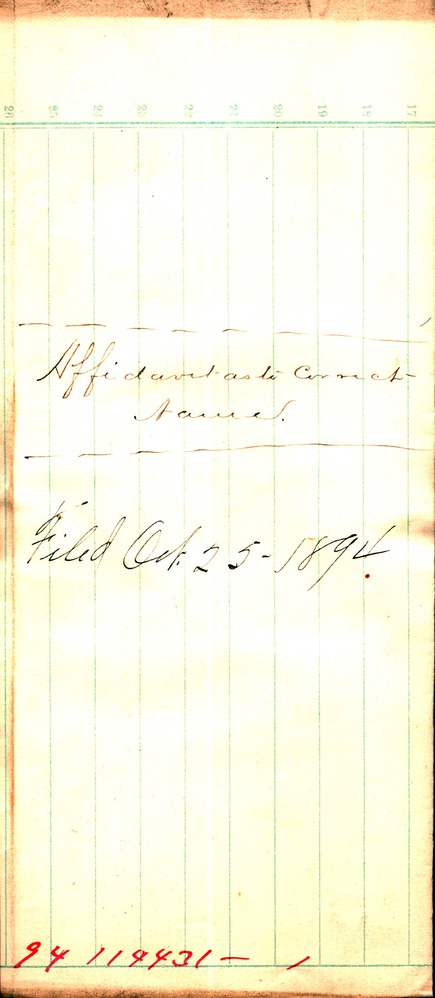 26 25 24 23 22 21 20 19 18 17
Affidavit as to Correct
Name.
Filed Oct. 25-1894
94 119431- 1